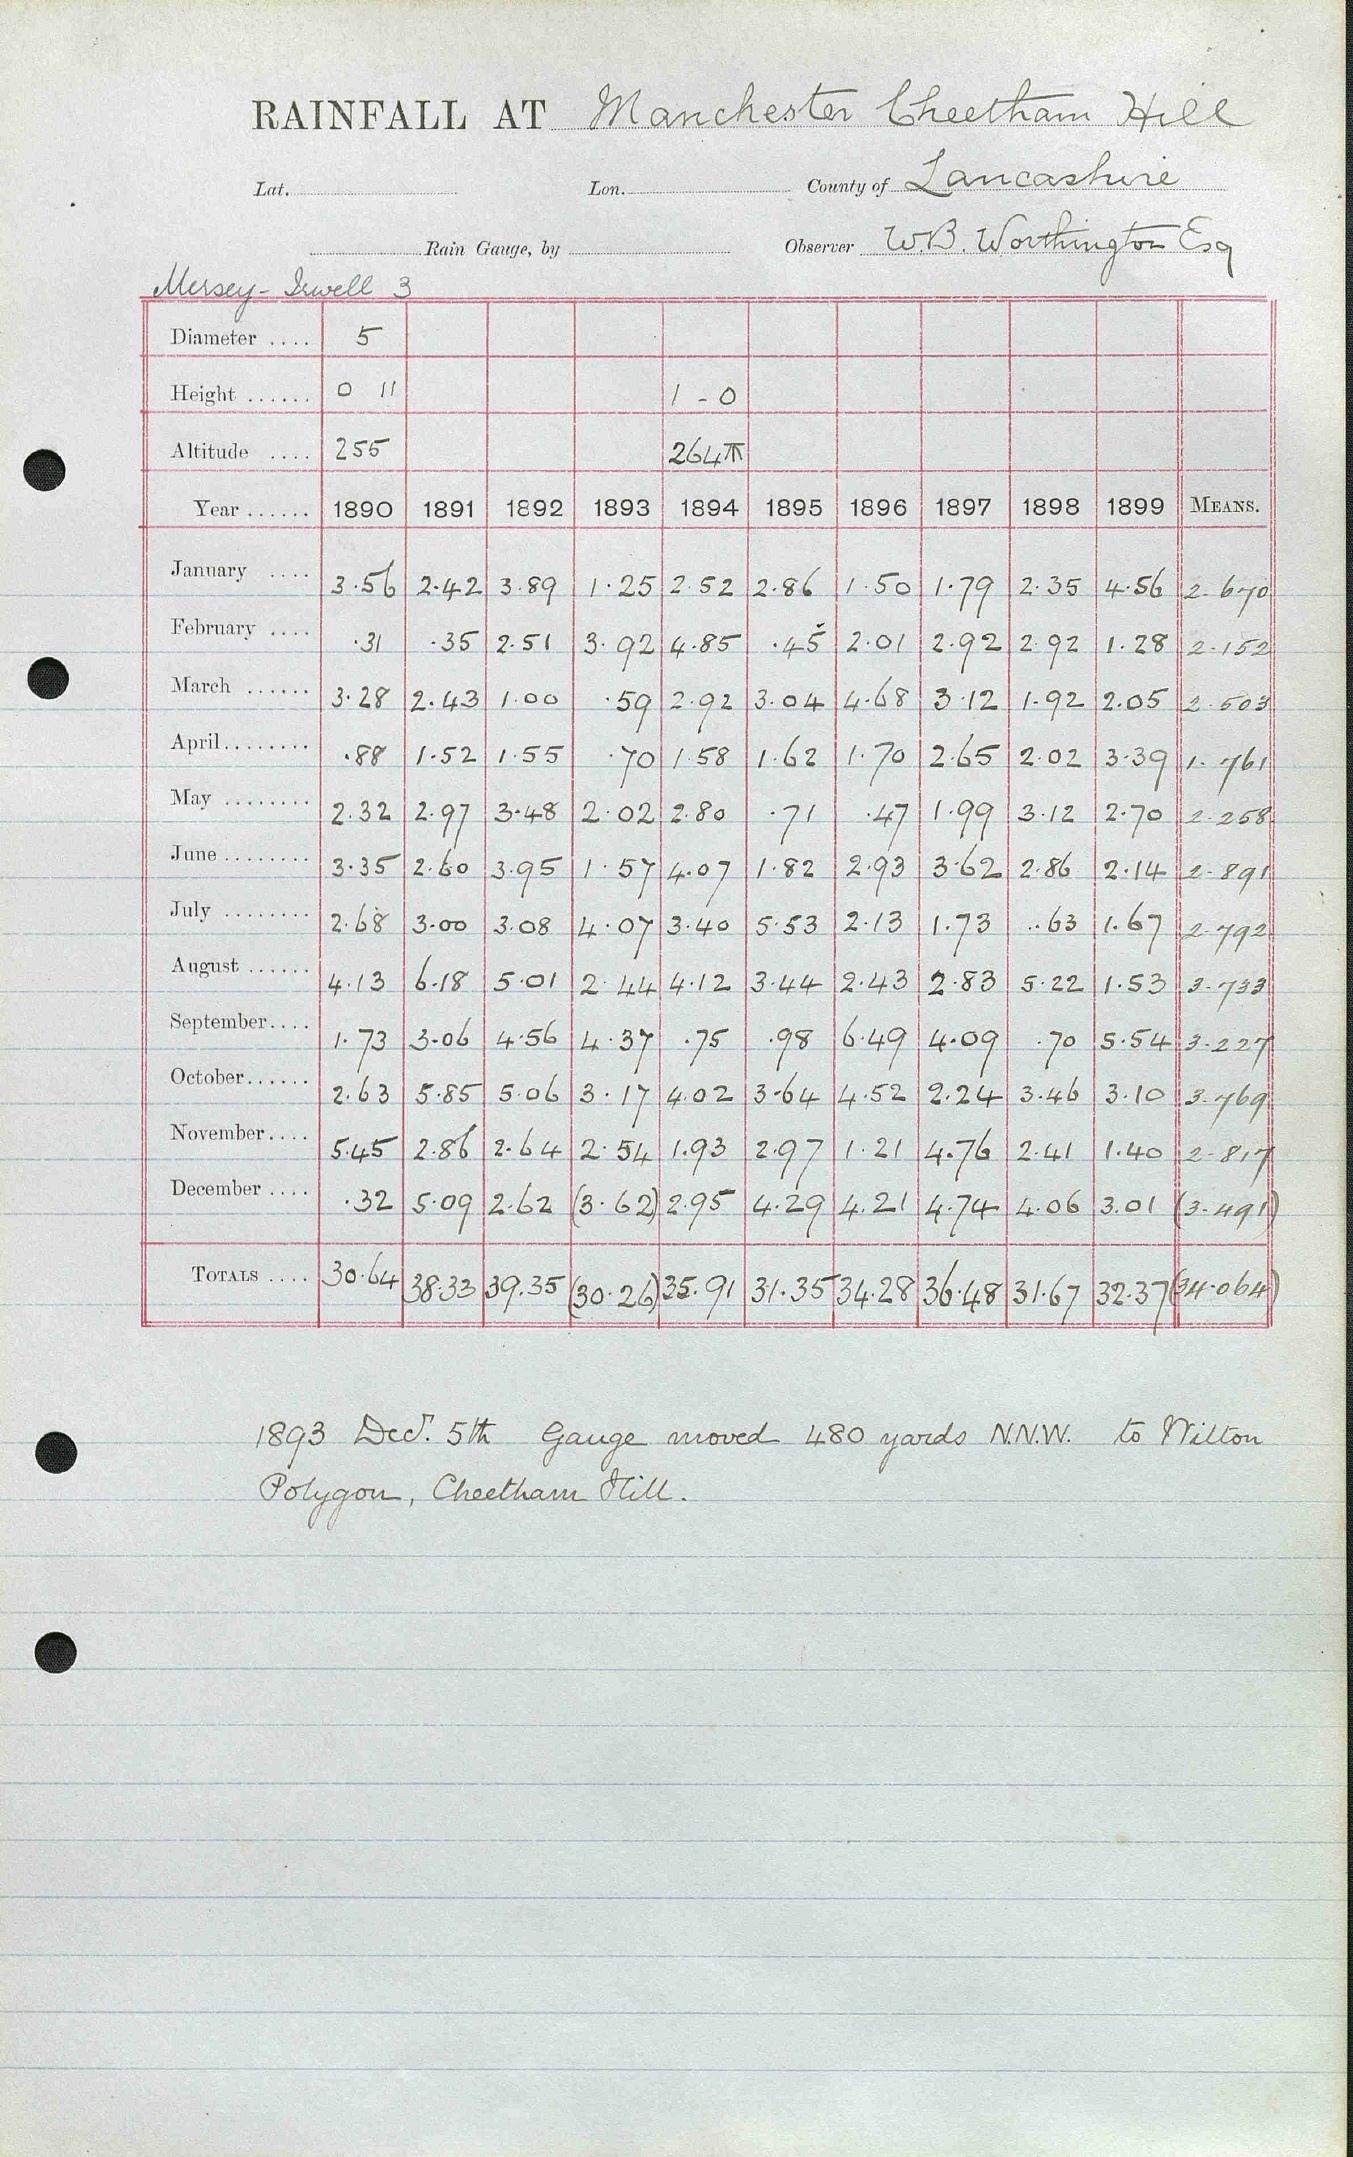 RAINFALL AT Manchester Cheetham Hill
Lat. Lon. County of Lancashire
Rain Gauge, by Observer W.B. Worthington Esq
Mersey - Irwell 3
Diameter .... 5
Height ...... 0 11 1 - 0
Altitude .... 255 264
Year ...... 1890 1891 1892 1893 1894 1895 1896 1897 1898 1899 MEANS.
January .... 3.56 2.42 3.89 1.25 2.52 2.86 1.50 1.79 2.35 4.56 2.670
February .... .31 .35 2.51 3.92 4.85 .45 2.01 2.92 2.92 1.28 2.152
March ...... 3.28 2.43 1.00 .59 2.92 3.04 4.68 3.12 1.92 2.05 2.503
April........ .88 1.52 1.55 .70 1.58 1.62 1.70 2.65 2.02 3.39 1.761
May ........ 2.32 2.97 3.48 2.02 2.80 .71 .47 1.99 3.12 2.70 2.258
June ........ 3.35 2.60 3.95 1.57 4.07 1.82 2.93 3.62 2.86 2.14 2.891
July ........ 2.68 3.00 3.08 4.07 3.40 5.53 2.13 1.73 .63 1.67 2.792
August ...... 4.13 6.18 5.01 2.44 4.12 3.44 2.43 2.83 5.22 1.53 3.733
September.... 1.73 3.06 4.56 4.37 .75 .98 6.49 4.09 .70 5.54 3.227
October...... 2.63 5.85 5.06 3.17 4.02 3.64 4.52 2.24 3.46 3.10 3.769
November.... 5.45 2.86 2.64 2.54 1.93 2.97 1.21 4.76 2.41 1.40 2.817
December .... .32 5.09 2.62 (3.62) 2.95 4.29 4.21 4.74 4.06 3.01 (3.491)
TOTALS .... 30.64 38.33 39.35 (30.26) 35.91 31.35 34.28 36.48 31.67 32.37 (34.064)
1893 Decr. 5th Gauge moved 480 yards N.N.W. to Wilton
Polygon, Cheetham Hill.